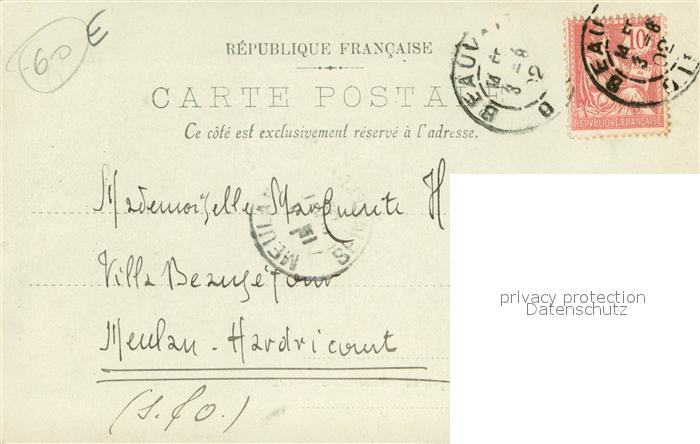 60 E
RÉPUBLIQUE FRANÇAISE
CARTE POSTALE
Ce côté est exclusivement réservé à l'adresse.
BEAUV
3 -8
02
BEAU
3 -8
02
10
REPVBLIQVE FRANÇAISE
Mademoiselle Marguerite H
MEULAN
Villa Beauséjour
Meulan - Hardricourt
(S. & O.)
privacy protection
Datenschutz